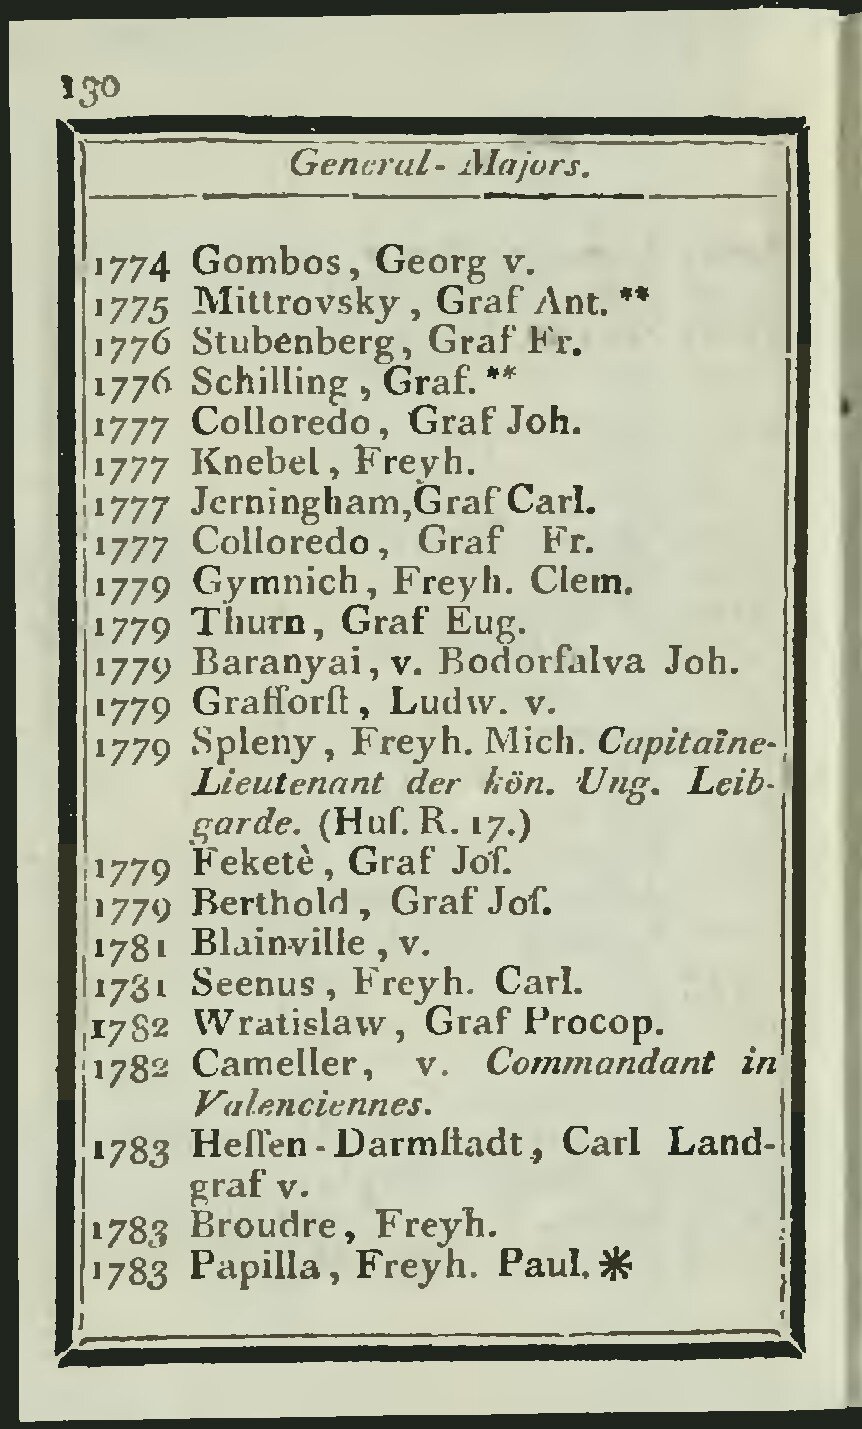 130
General-Majors.
1774 Gombos, Georg v.
1775 Mittrovsky, Graf Ant. **
1776 Stubenberg, Graf Fr.
1776 Schilling, Graf. **
1777 Colloredo, Graf Joh.
1777 Knebel, Freyh.
1777 Jerningham, Graf Carl.
1777 Colloredo, Graf Fr.
1779 Gymnich, Freyh. Clem.
1779 Thurn, Graf Eug.
1779 Baranyai, v. Bodorfalva Joh.
1779 Graffforſt, Ludw. v.
1779 Spleny, Freyh. Mich. Capitaine-
Lieutenant der kön. Ung. Leib-
garde. (Huſ. R. 17.)
1779 Feketè, Graf Joſ.
1779 Berthold, Graf Joſ.
1781 Blainville, v.
1781 Seenus, Freyh. Carl.
1782 Wratislaw, Graf Procop.
1782 Cameller, v. Commandant in
Valenciennes.
1783 Heſſen-Darmſtadt, Carl Land-
graf v.
1783 Broudre, Freyh.
1783 Papilla, Freyh. Paul. *